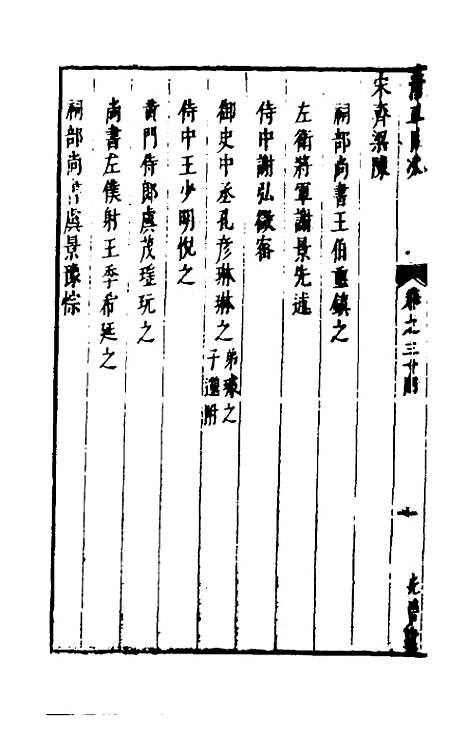 宋齊梁陳
祠部尚書王伯重鎮之
左衛將軍謝景先述
侍中謝弘微密
御史中丞孔彥琳琳之 弟璩之 子邈附
侍中王少明悅之
黃門侍郎虞茂瑤玩之
尚書左僕射王季希延之
祠部尚書虞景豫悰
卷之三
十